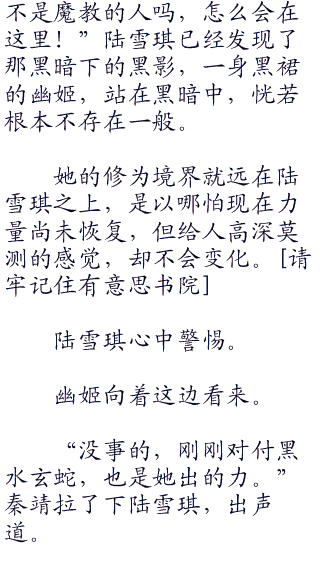 不是魔教的人吗，怎么会在
这里！”陆雪琪已经发现了
那黑暗下的黑影，一身黑裙
的幽姬，站在黑暗中，恍若
根本不存在一般。
她的修为境界就远在陆
雪琪之上，是以哪怕现在力
量尚未恢复，但给人高深莫
测的感觉，却不会变化。[请
牢记住有意思书院]
陆雪琪心中警惕。
幽姬向着这边看来。
“没事的，刚刚对付黑
水玄蛇，也是她出的力。”
秦靖拉了下陆雪琪，出声
道。